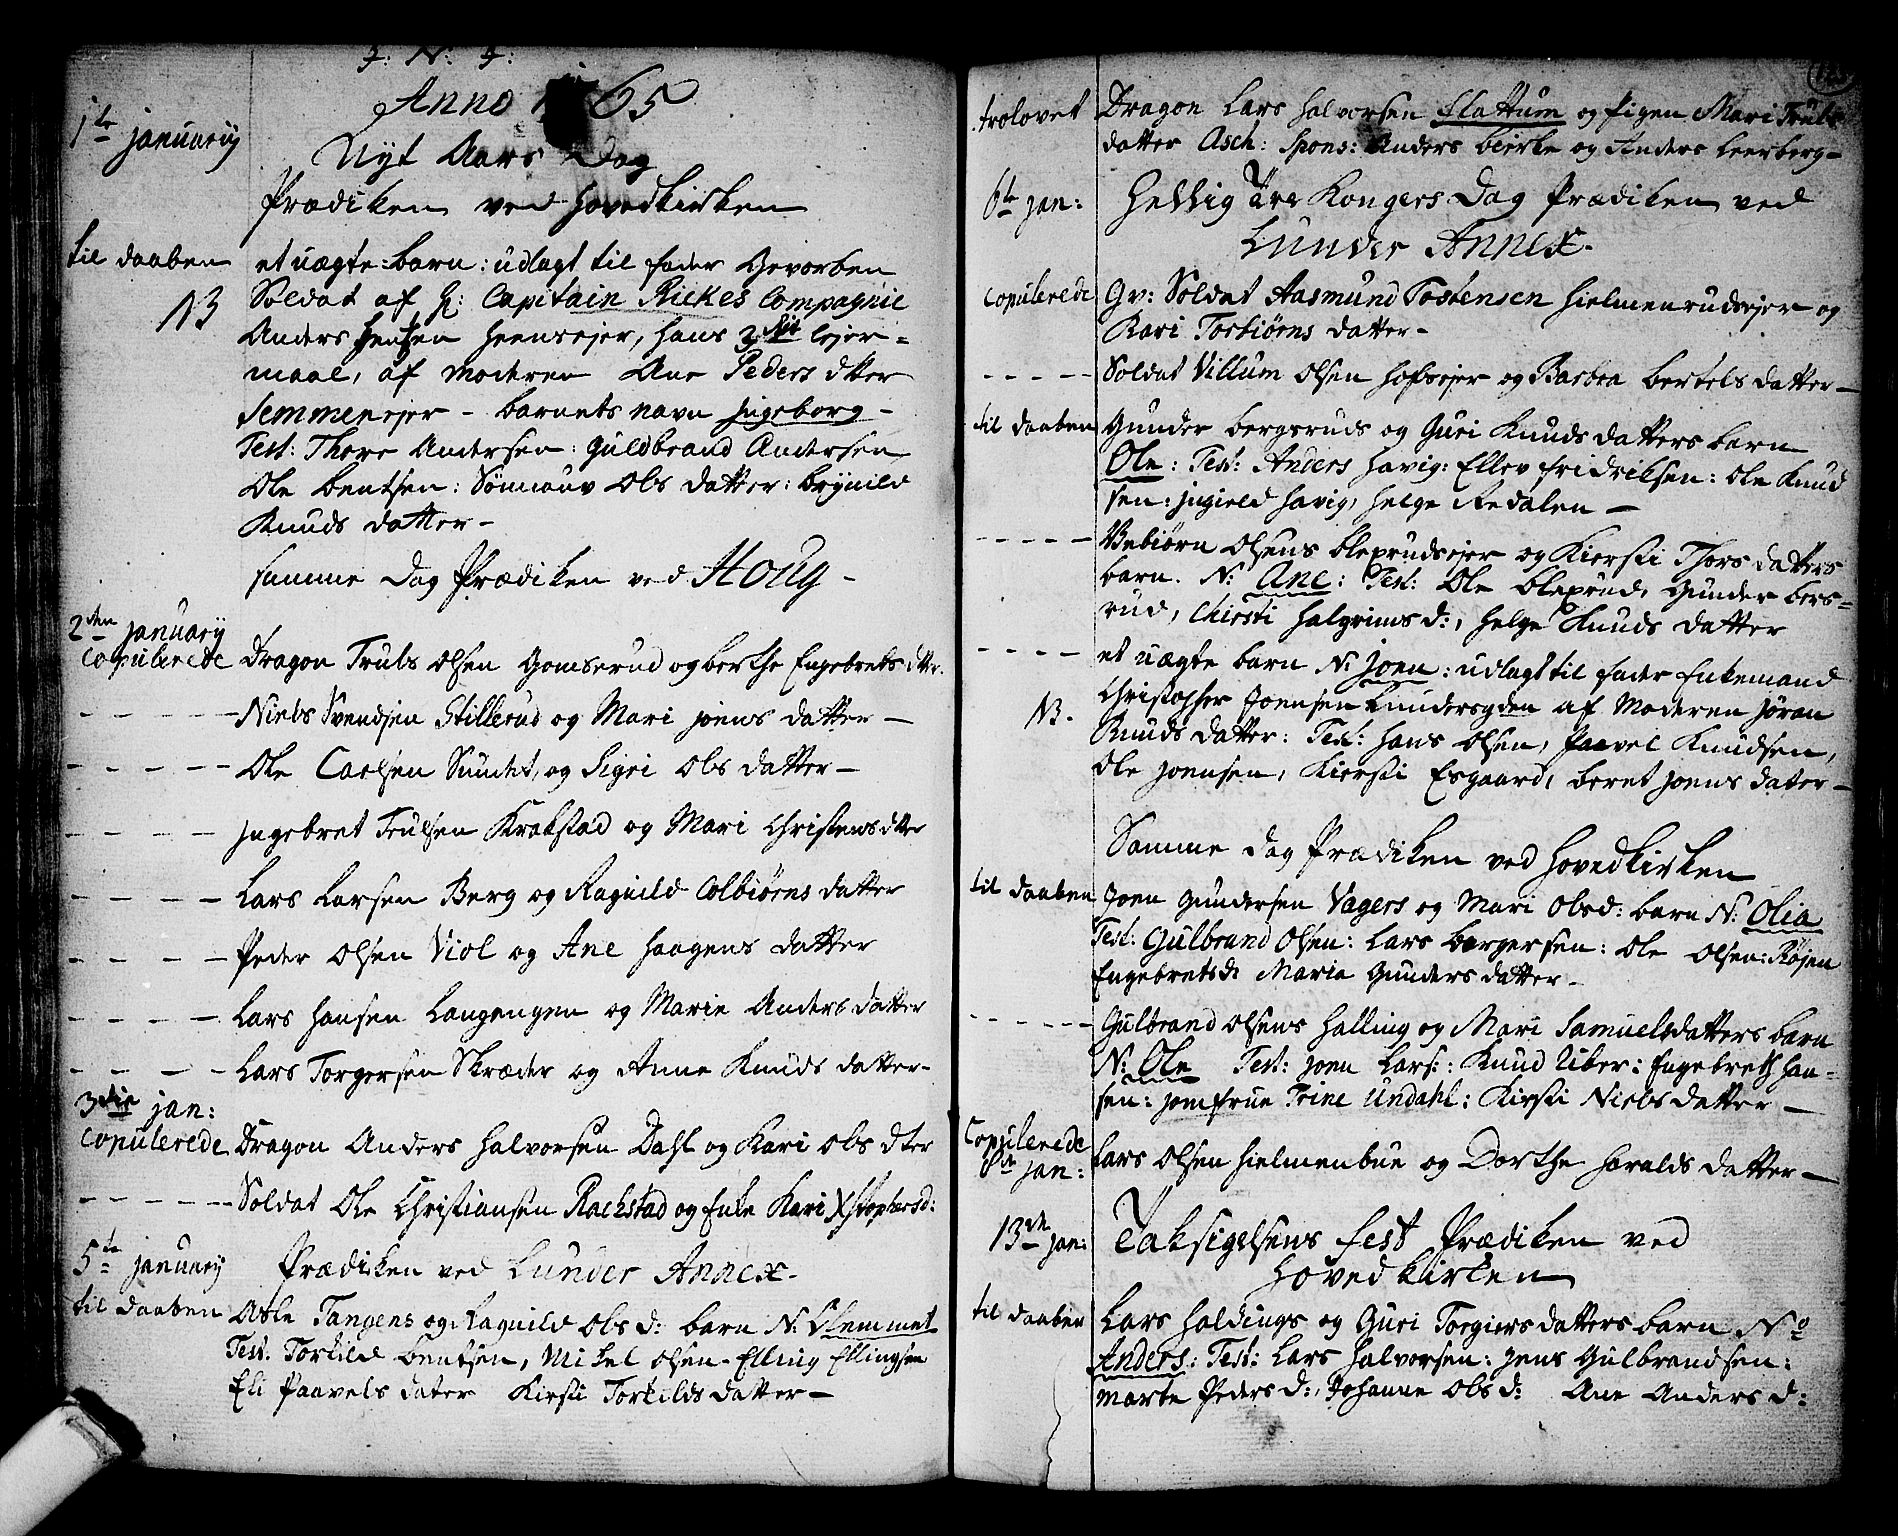 J: N: J:
Anno 1765
1te january
Nyt Aars Dag
Prædiken ved Hovedkirken
til daaben et uægte barn: udlagt til fader Gevorben
NB Soldat af H: Capitain Rickes Compagnie
Anders Hensen Heensejer, hans 3die lejer=
maal, af Moderen Ane Peders dtter
Semmenejer - barnets navn Jngeborg -
Test: Thore Andersen: Guldbrand Andersen,
Ole bentsen: Sönnouv Ols datter: brynild
Knuds datter -
samme Dag Prædiken ved Houg -
2den january
Copulerede Dragon Truls Olsen Gomserud og berthe Engebrets dtter.
- - - - - Niels Svendsen Stillerud og Mari joens datter -
- - - - - Ole Carlsen Sundet, og Sigri Ols datter -
- - - - Jngebret Trulsen Krakstad og Mari Christens dtter
- - - - Lars Larsen Berg og Ragnild Colbiörns datter
- - - - Peder Olsen Viol og Ane Haagens datter
- - - - Lars Hansen Langengen og Marie Anders datter
- - - - Lars Torgersen Skræder og Anne Knuds datter -
3die jan:
Copulerede Dragon Anders Halvorsen Dahl og Kari Ols dter
- - - - - Soldat Ole Christiansen Rackstad og Enke Kari Xstophersd:
5te january Prædiken ved Lunder Annex.
til daaben Asle Tangens og Ragnild Ols d: barn N: Clemmet
Test. Torkild bentsen, Mikel Olsen - Elling Ellingsen
Eli Paavels dater Kirsti Torkilds datter -
trolovet Dragon Lars Halvorsen Flattum og Pigen Mari Truls
datter Asch: Spons: Anders bierke og Anders Leerberg -
6te jan: Hellig Tre Kongers Dag Prædiken ved
Lunder Annex.
Copulerede Gv: Soldat Aasmund Tostensen Hielmenrudsejer og
Kari Torbiörns datter -
- - - - Soldat Villum Olsen Hofsejer og Barbra bertels datter -
til daaben Gunder bergsruds og Guri Knuds datters barn
Ole: Test: Anders Havig: Ellev fridriksen: Ole Knud
sen: jngield Havig, Helge Redalen -
- - - - - Vebiörn Olsens bleprudsejer og Kiersti Thors datters
barn. N: Ane: Test: Ole bleprud, Gunder bers=
rud, Chirsti Halgrims d:, Helge Knuds datter
- - - - et uægte barn N: Joen: udlagt til fader Enkemand
NB. Christopher Joensen Lundersgden af Moderen Jöran
Knuds datter: Test: Hans Olsen, Paavel Knudsen,
Ole joensen, Kiersti Esgaard, beret joens dater -
Samme Dag Prædiken ved Hovedkirken
til daaben Joen Gundersen Vagers og Mari Olsd: barn N: Olia
Test: Gulbrand Olsen: Lars borgersen: Ole Olsen: Röjen
Engebretsd: Maria Gunders datter -
- - - - - Gulbrand Olsens Halling og Mari Samuelsdatters barn
N: Ole Test: joen Lars: Knud Uber: Engebreth Han=
sen: jomfrue Trine Undahl: Kirsti Niels datter -
Copulerede
8de jan: Lars Olsen Hielmenbue og Dorthe Haralds datter -
13de jan: Taksigelsens Fest Prædiken ved
Hovedkirken
til daaben Lars Haldings og Guri Torgiers datters barn No
Anders: Test: Lars Halvorsen: jens Gulbrandsen:
Marte Peders d:, Johanne Ols d: Ane Anders d: